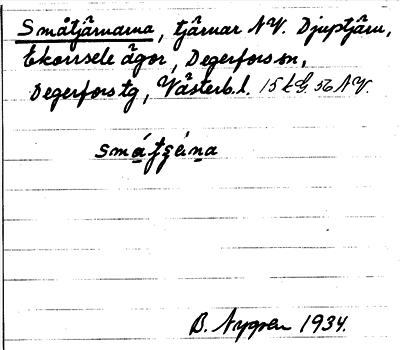 Småtjärnarna, tjärnar N.V. Djuptjärn,
Ekorrsele ägor, Degerfors sn,
Degerfors tg, Västerb. l. 15 k G. 56 N.V.
smátʂéna
B. Nygren 1934.